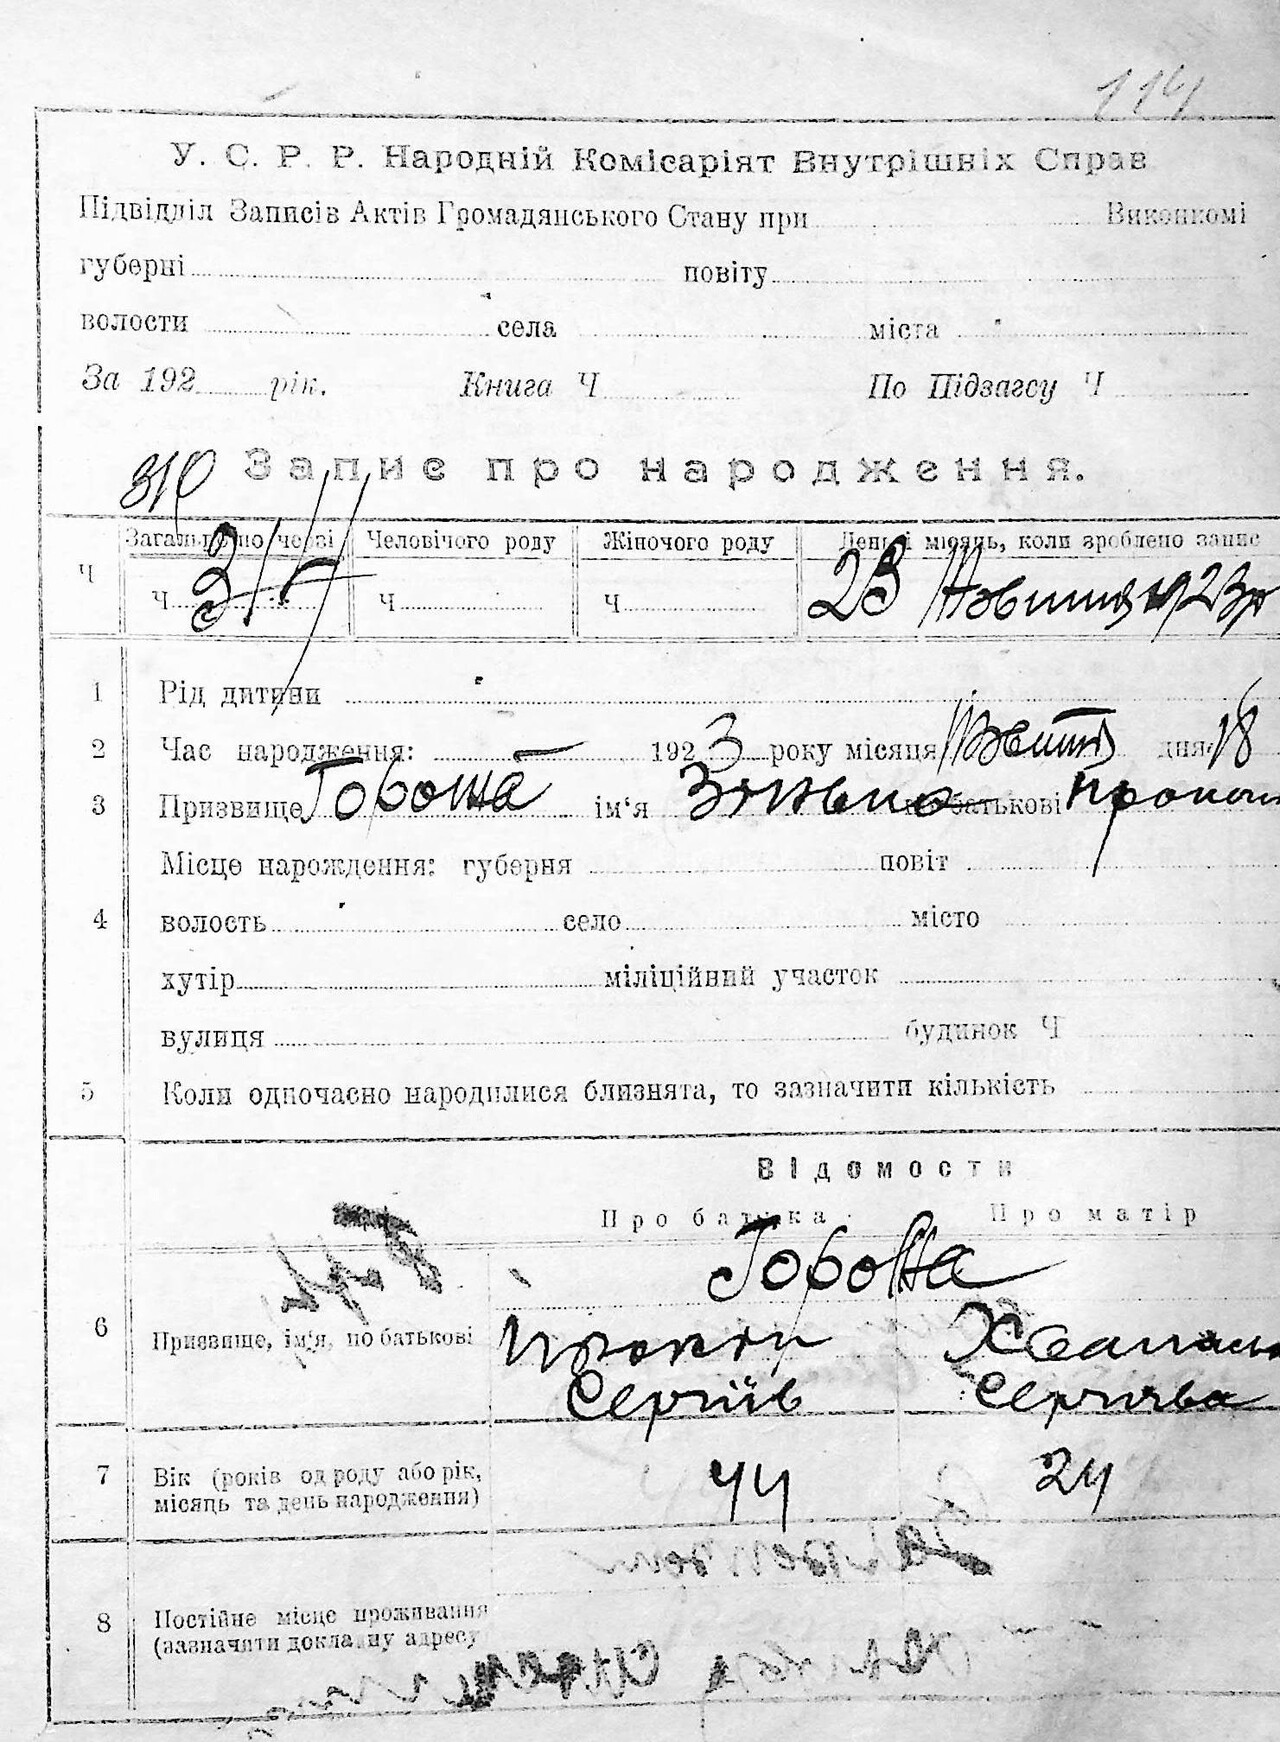 114
У. С. Р. Р. Народній Комісаріят Внутрішніх Справ
Підвідділ Записів Актів Громадянського Стану при Виконкомі
губерні повіту
волости села міста
За 192 рік. Книга Ч По Підзагсу Ч
310 Запис про народження.
Загально по черзі Человічого роду Жіночого роду День і місяць, коли зроблено запис
Ч Ч 317 Ч Ч 23 Жовтня 1923 р
1 Рід дитини
2 Час народження: 1923 року місяця Жовтня дня 18
3 Призвище Гороша ім‘я Зінько по батькові
Місце нарождення: губерня повіт
4 волость село місто
хутір міліційний участок
вулиця будинок Ч
5 Коли одночасно народилися близнята, то зазначити кількість
Відомости
Про батька Про матір
Гороша
6 Призвище, ім‘я, по батькові
Сергіїв
7 Вік (років од роду або рік, 44 24
місяць та день народження)
8 Постійне місце проживання
(зазначити докладну адресу